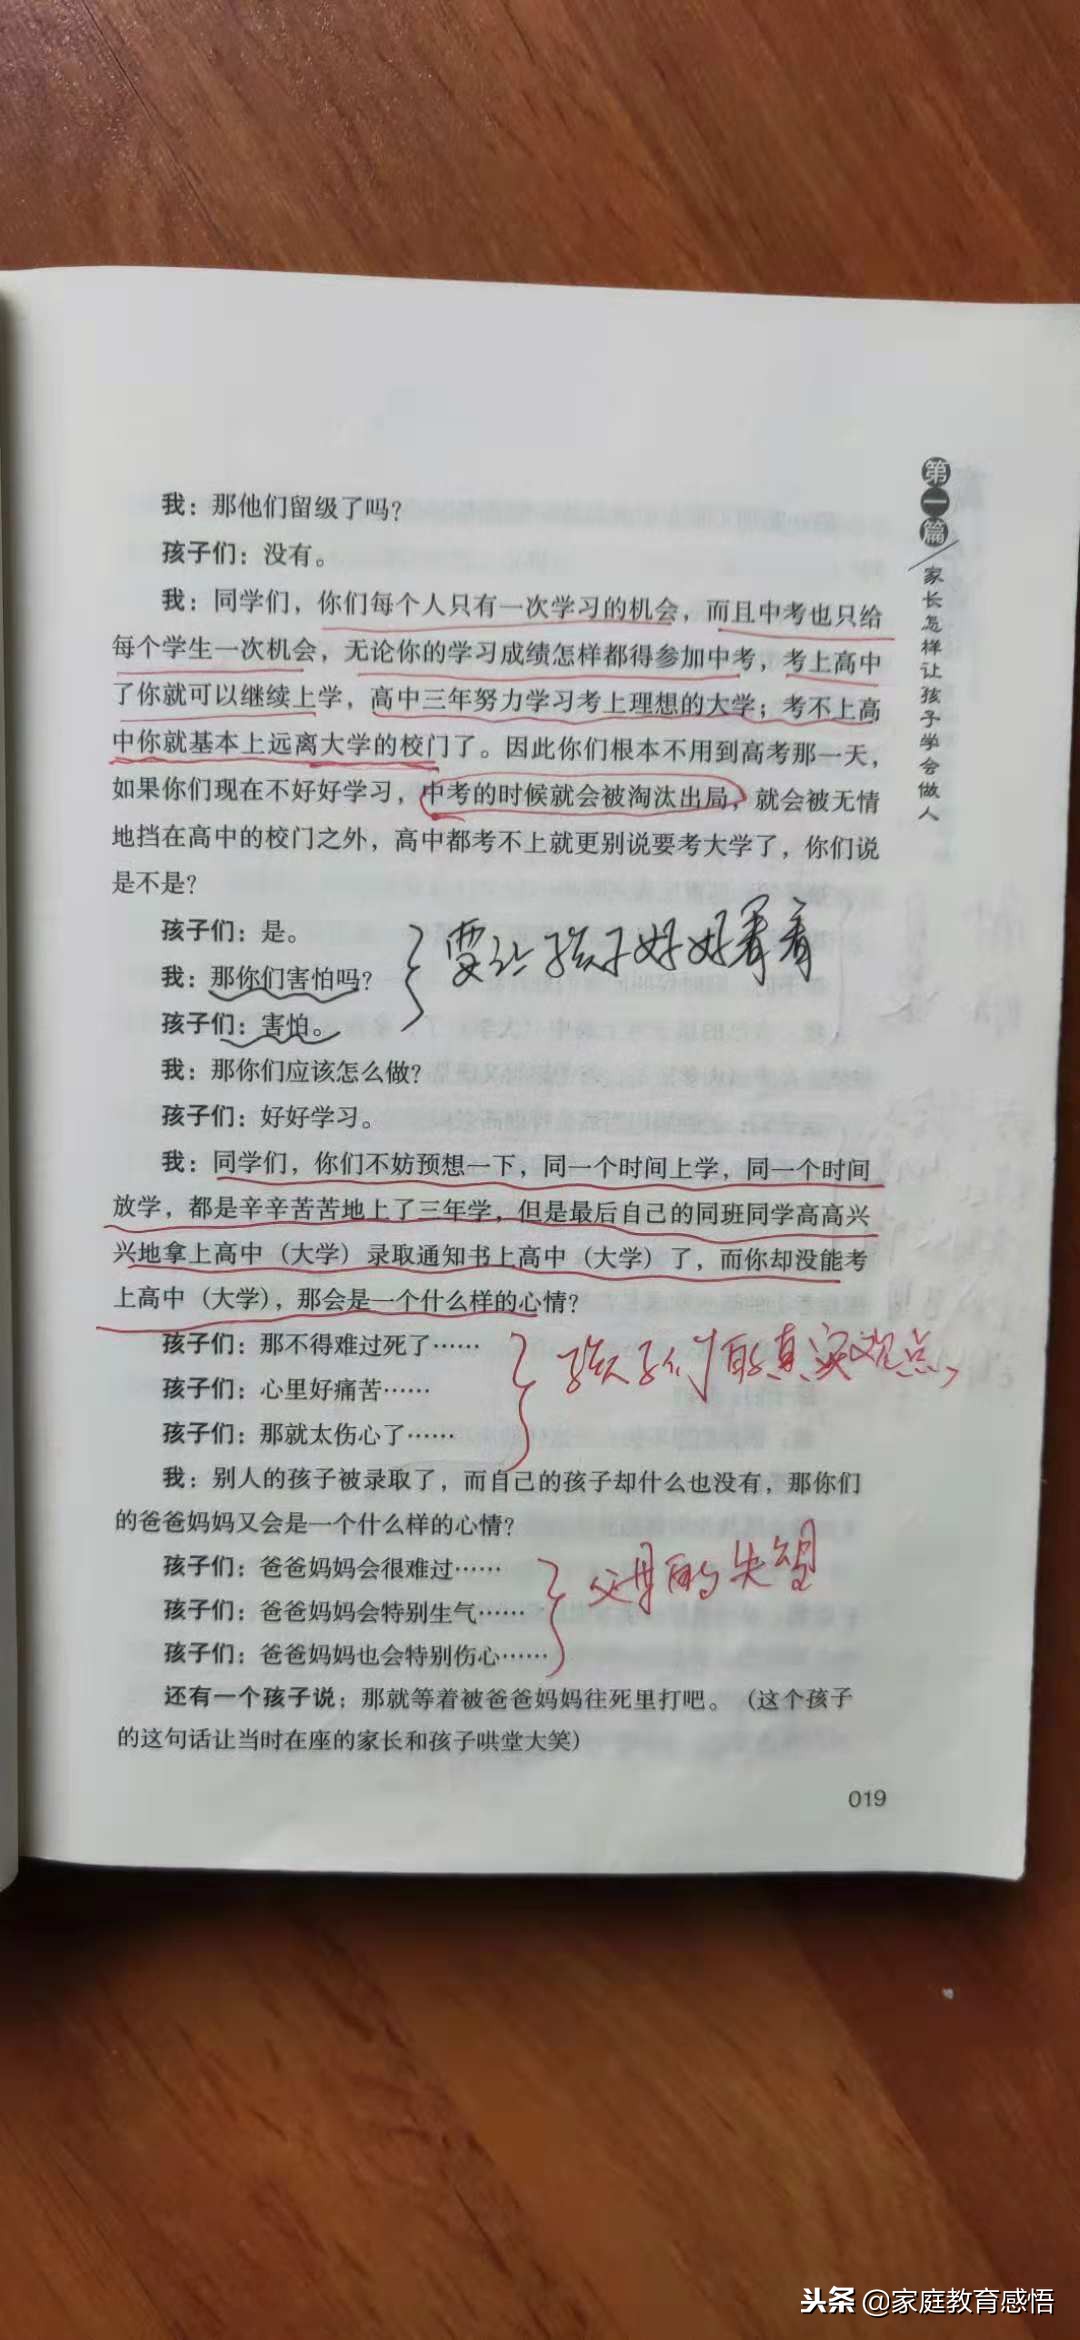 第一篇
家长怎样让孩子学会做人
我：那他们留级了吗？
孩子们：没有。
我：同学们，你们每个人只有一次学习的机会，而且中考也只给
每个学生一次机会，无论你的学习成绩怎样都得参加中考，考上高中
了你就可以继续上学，高中三年努力学习考上理想的大学；考不上高
中你就基本上远离大学的校门了。因此你们根本不用到高考那一天，
如果你们现在不好好学习，中考的时候就会被淘汰出局，就会被无情
地挡在高中的校门之外，高中都考不上就更别说要考大学了，你们说
是不是？
孩子们：是。
我：那你们害怕吗？
要让孩子好好看看
孩子们：害怕。
我：那你们应该怎么做？
孩子们：好好学习。
我：同学们，你们不妨预想一下，同一个时间上学，同一个时间
放学，都是辛辛苦苦地上了三年学，但是最后自己的同班同学高高兴
兴地拿上高中（大学）录取通知书上高中（大学）了，而你却没能考
上高中（大学），那会是一个什么样的心情？
孩子们：那不得难过死了……
孩子们：心里好痛苦……
孩子们的真实观点，
孩子们：那就太伤心了……
我：别人的孩子被录取了，而自己的孩子却什么也没有，那你们
的爸爸妈妈又会是一个什么样的心情？
孩子们：爸爸妈妈会很难过……
孩子们：爸爸妈妈会特别生气……
父母的失望
孩子们：爸爸妈妈也会特别伤心……
还有一个孩子说：那就等着被爸爸妈妈往死里打吧。（这个孩子
的这句话让当时在座的家长和孩子哄堂大笑）
019
头条 @家庭教育感悟